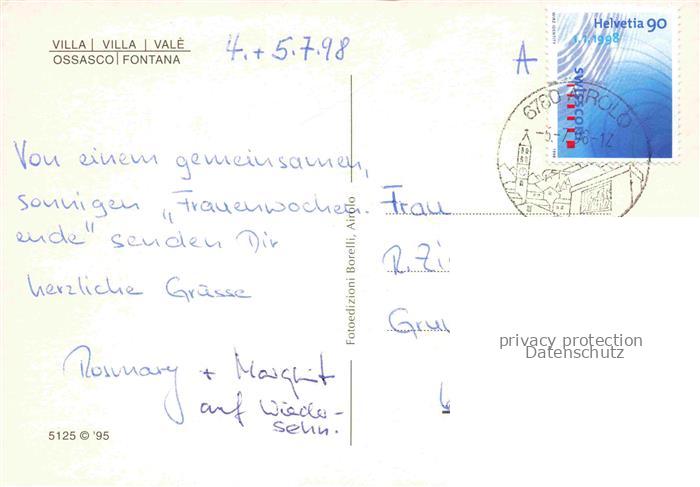 VILLA | VILLA | VALÈ
OSSASCO | FONTANA
4. + 5.7.98
A
Helvetia 90
1.1.1998
SWISSCOM
6780 AIROLO
-5.-7.98-12
Von einem gemeinsamen,
sonnigen „Frauenwochen-
ende" senden Dir
herzliche Grüsse
Rosmary + Margrit
auf Wieder-
sehn.
Fotoedizioni Borelli, Airolo
Frau
R. Zi
Gru
privacy protection
Datenschutz
5125 © '95